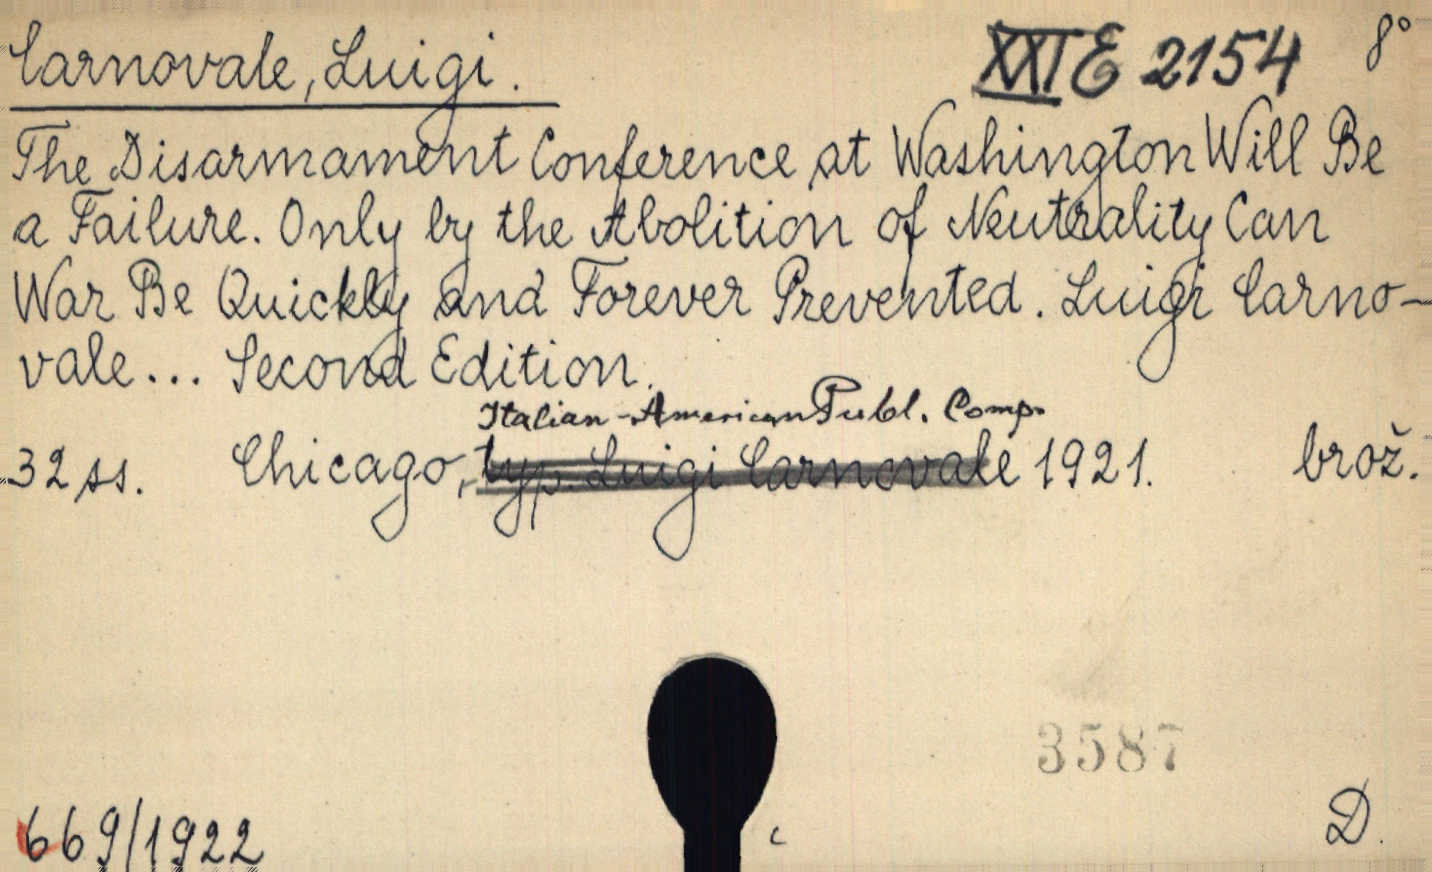 Carnovale, Luigi.
XXI E 2154
8°
The Disarmament Conference at Washington Will Be
a Failure. Only by the Abolition of Neutrality Can
War Be Quickly and Forever Prevented. Luigi Carno-
vale... Second Edition.
Italian-American Publ. Comp.
32 ss. Chicago, typ. Luigi Carnovale 1921. brož.
3587
669/1922
c
D.